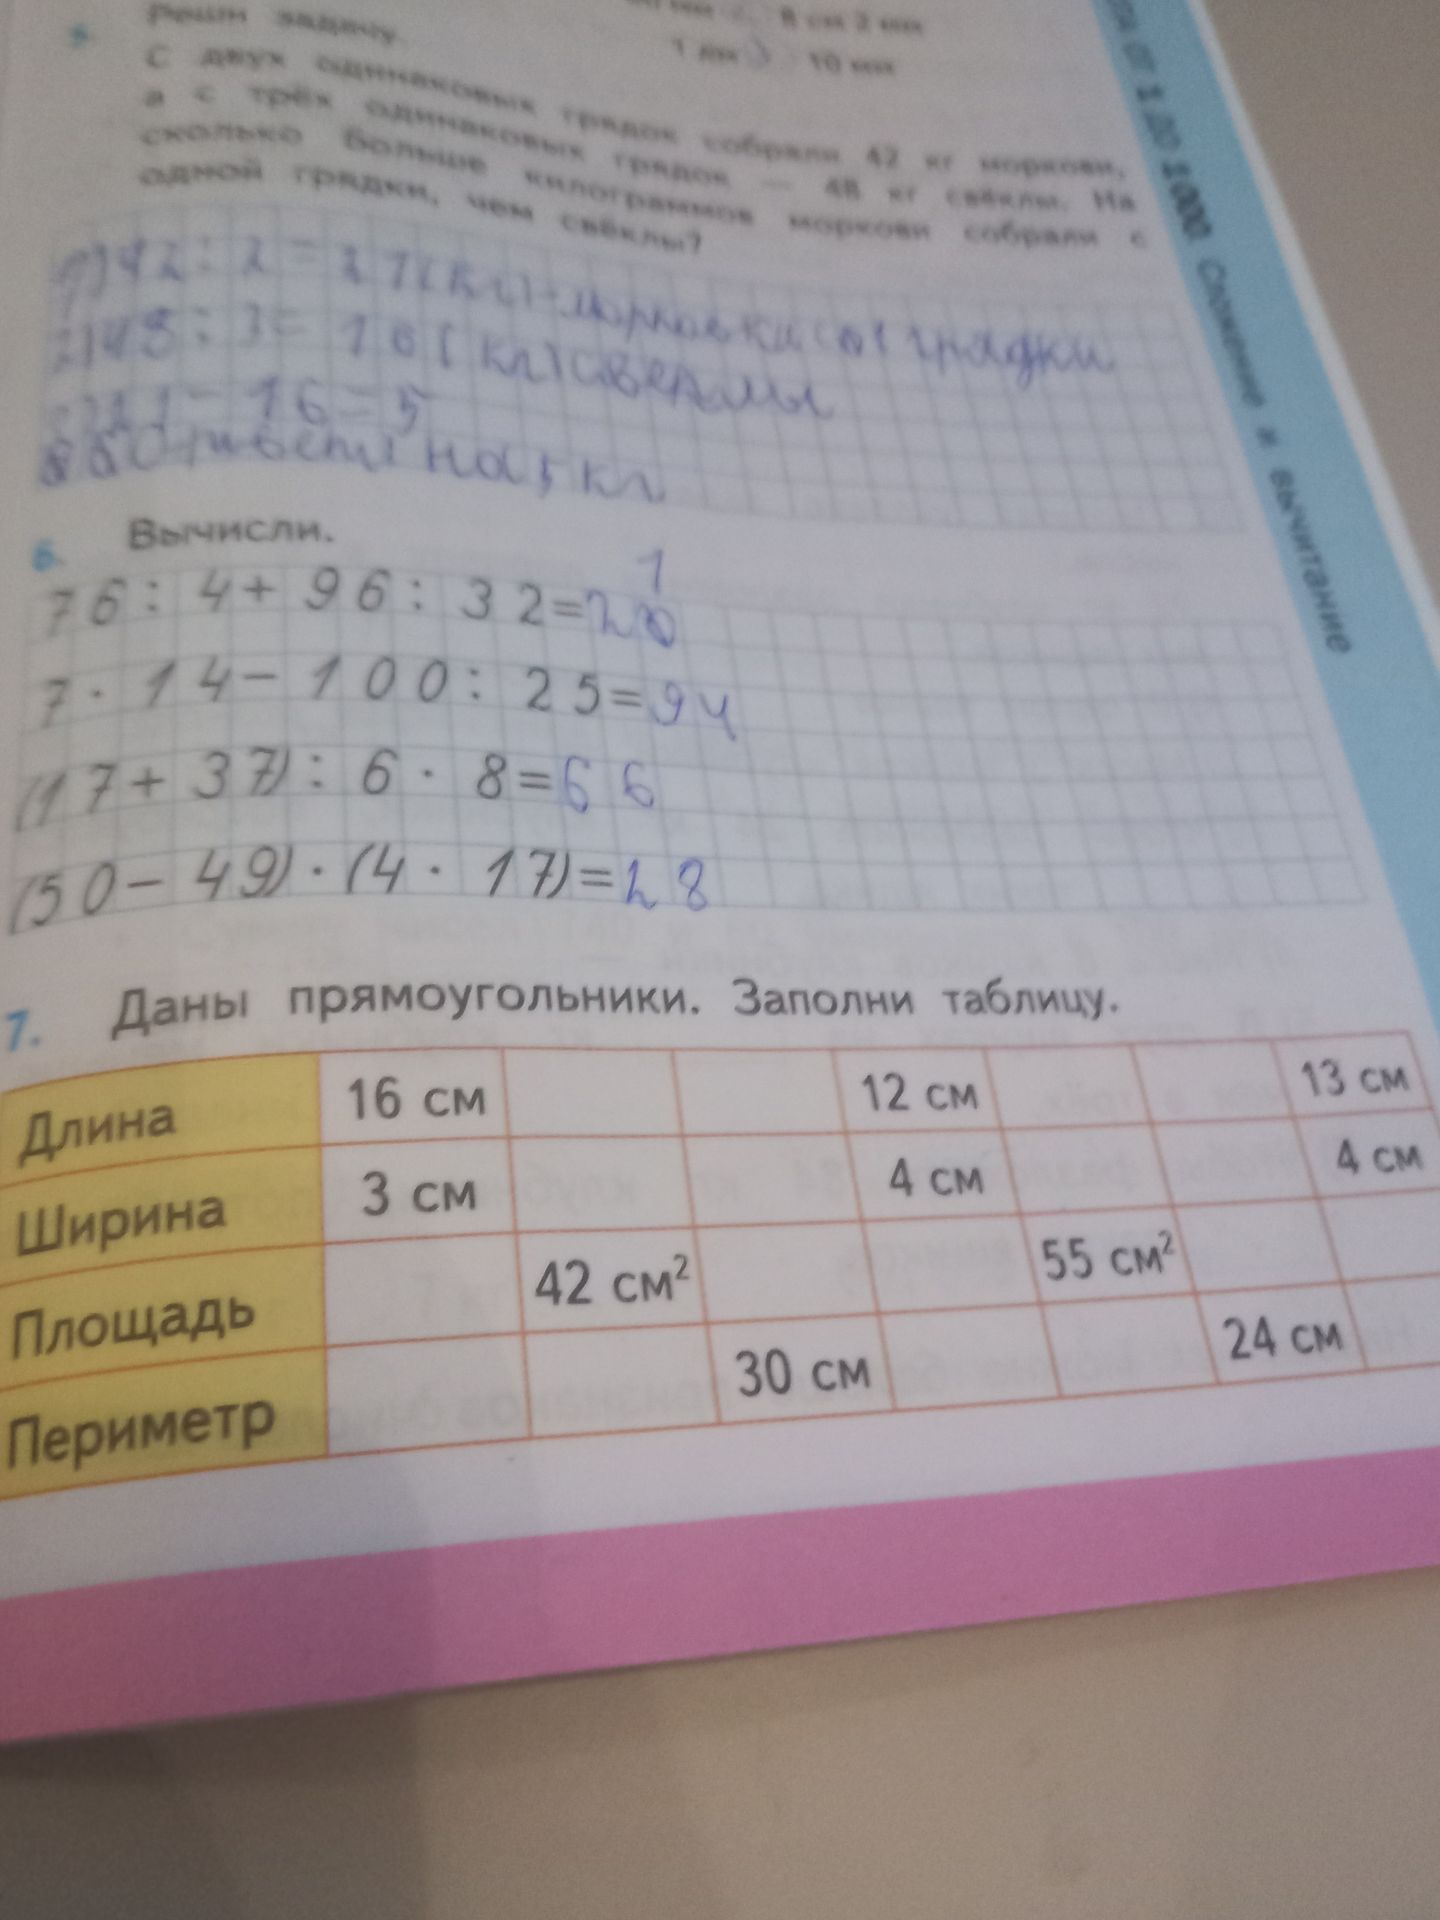 8 см 2 мм
Реши задачу.
1 дм > 10 мм
С двух одинаковых грядок собрали 42 кг моркови,
а с трёх одинаковых грядок — 48 кг свёклы. На
сколько больше килограммов моркови собрали с
одной грядки, чем свёклы?
1) 42 : 2 = 21 (кг) -
грядки
2) 48 : 3 = 16 (кг)
- 16 = 5
на 5 кг
6. Вычисли.
76 : 4 + 96 : 32 = 2
7 · 14 - 100 : 25 = 94
(17 + 37) : 6 · 8 = 66
(50 - 49) · (4 · 17) = 28
7. Даны прямоугольники. Заполни таблицу.
Длина 16 см 12 см 13 см
Ширина 3 см 4 см 4 см
Площадь 42 см² 55 см²
Периметр 30 см 24 см
от 1 до 1000. Сложение и вычитание